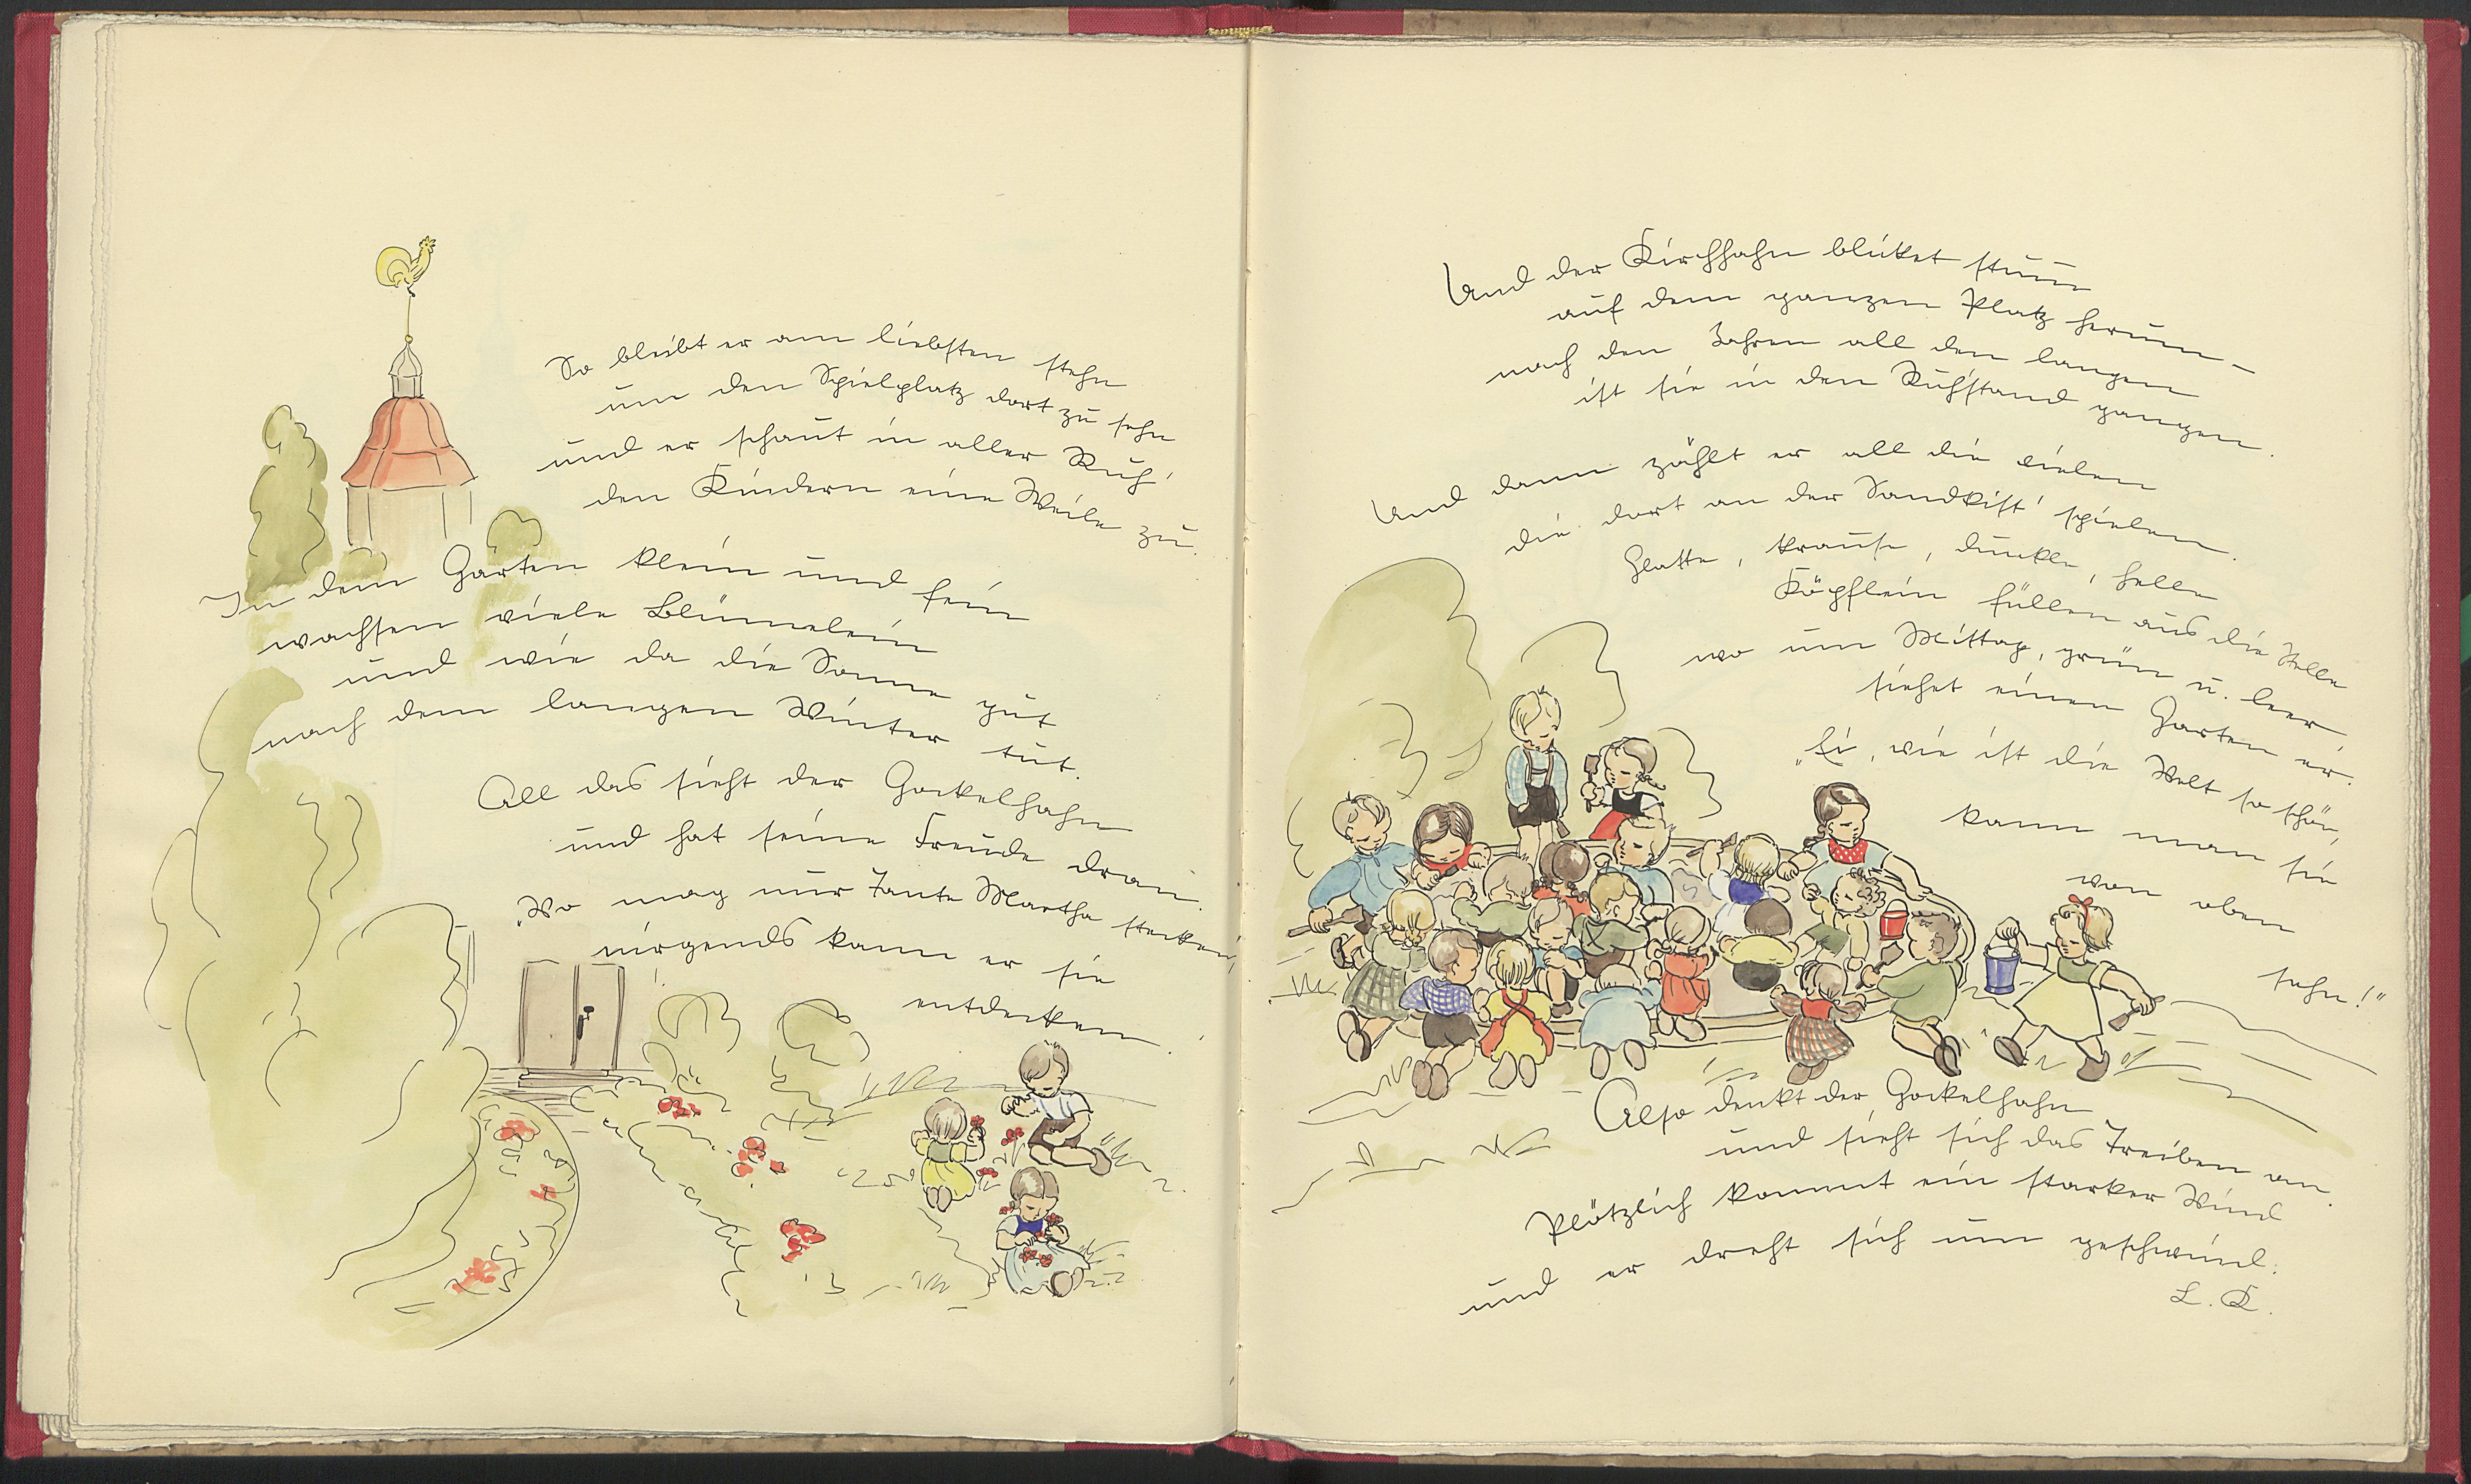 So bleibt er am liebsten stehn
um den Spielplatz dort zu sehn
und er schaut in aller Ruh'
den Kindern eine Weile zu.
In dem Garten klein und fein
wachsen viele Blümelein
und wie da die Sonne gut
nach dem langen Winter tut.
All das sieht der Gockelhahn
und hat seine Freude dran.
"Wo mag nur Tante Martha stecken,
nirgends kann er sie
entdecken.
Und der Kirchhahn blicket stum̄
auf dem ganzen Platz herum –
nach den Jahren all den langen
ist sie in den Ruhstand gangen.
Und dann zählt er all die vielen
die dort an der Sandkist' spielen.
Glatte, krause, dunkle, helle
Köpflein füllen aus die Stelle
wo um Mittag, grün u. leer
siehet einen Garten er.
„Ei, wie ist die Welt so schön,
kann man sie
von oben
sehn!"
Also denkt der Gockelhahn
und sieht sich das Treiben an.
Plötzlich kommt ein starker Wind
und er dreht sich um geschwind.
L. K.